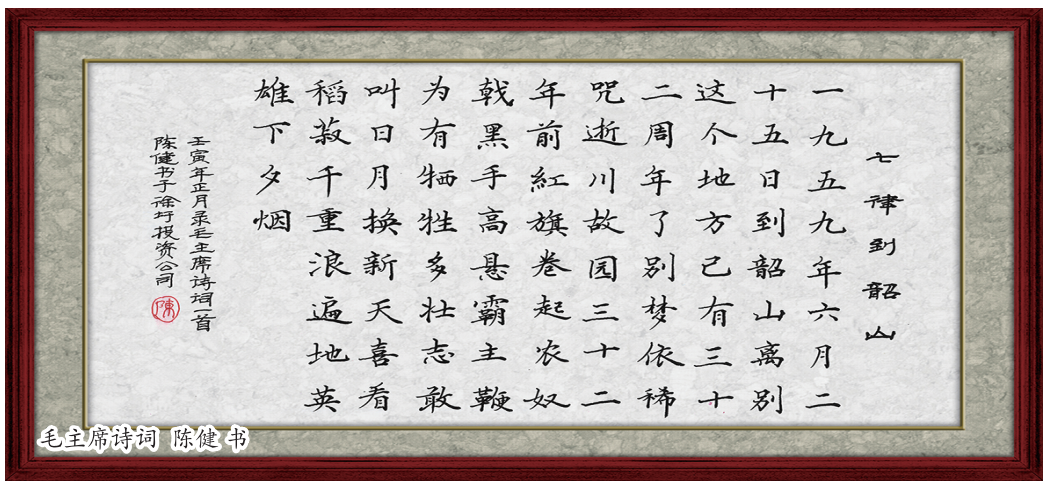 七律到韶山
一九五九年六月二
十五日到韶山离别
这个地方已有三十
二周年了别梦依稀
咒逝川故园三十二
年前紅旗卷起农奴
戟黑手高悬霸主鞭
为有牺牲多壮志敢
叫日月换新天喜看
稻菽千重浪遍地英
雄下夕烟
壬寅年正月录毛主席诗词一首
陈健书于徐圩投资公司
陳
毛主席诗词 陈健 书